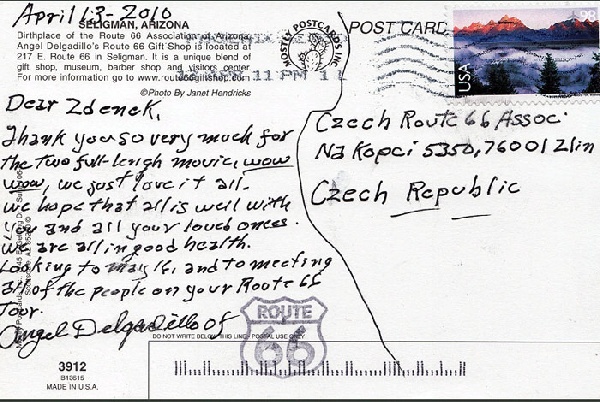 April 13-2010
SELIGMAN, ARIZONA
Birthplace of the Route 66 Association of Arizona,
Angel Delgadillo's Route 66 Gift Shop is located at
217 E. Route 66 in Seligman. It is a unique blend of
gift shop, museum, barber shop and visitors center
For more information go to www.route66giftshop.com
©Photo By Janet Hendricks
Dear Zdenek,
Thank you so very much for
the two full lengh movie, wow
wow, we just love it all.
we hope that all is well with
you and all your loved ones.
we are all in good health.
Looking to may 15, and to meeting
all of the people on your Route 66
Tour.
Angel Delgadillo of
ROUTE
66
3912
B10615
MADE IN U.S.A.
MOSTLY POSTCARDS INC.
POST CARD
PM
98
USA
Czech Route 66 Assoc.
Na Kopci 5350, 76001 Zlin
Czech Republic
DO NOT WRITE BELOW THIS LINE - POSTAL USE ONLY